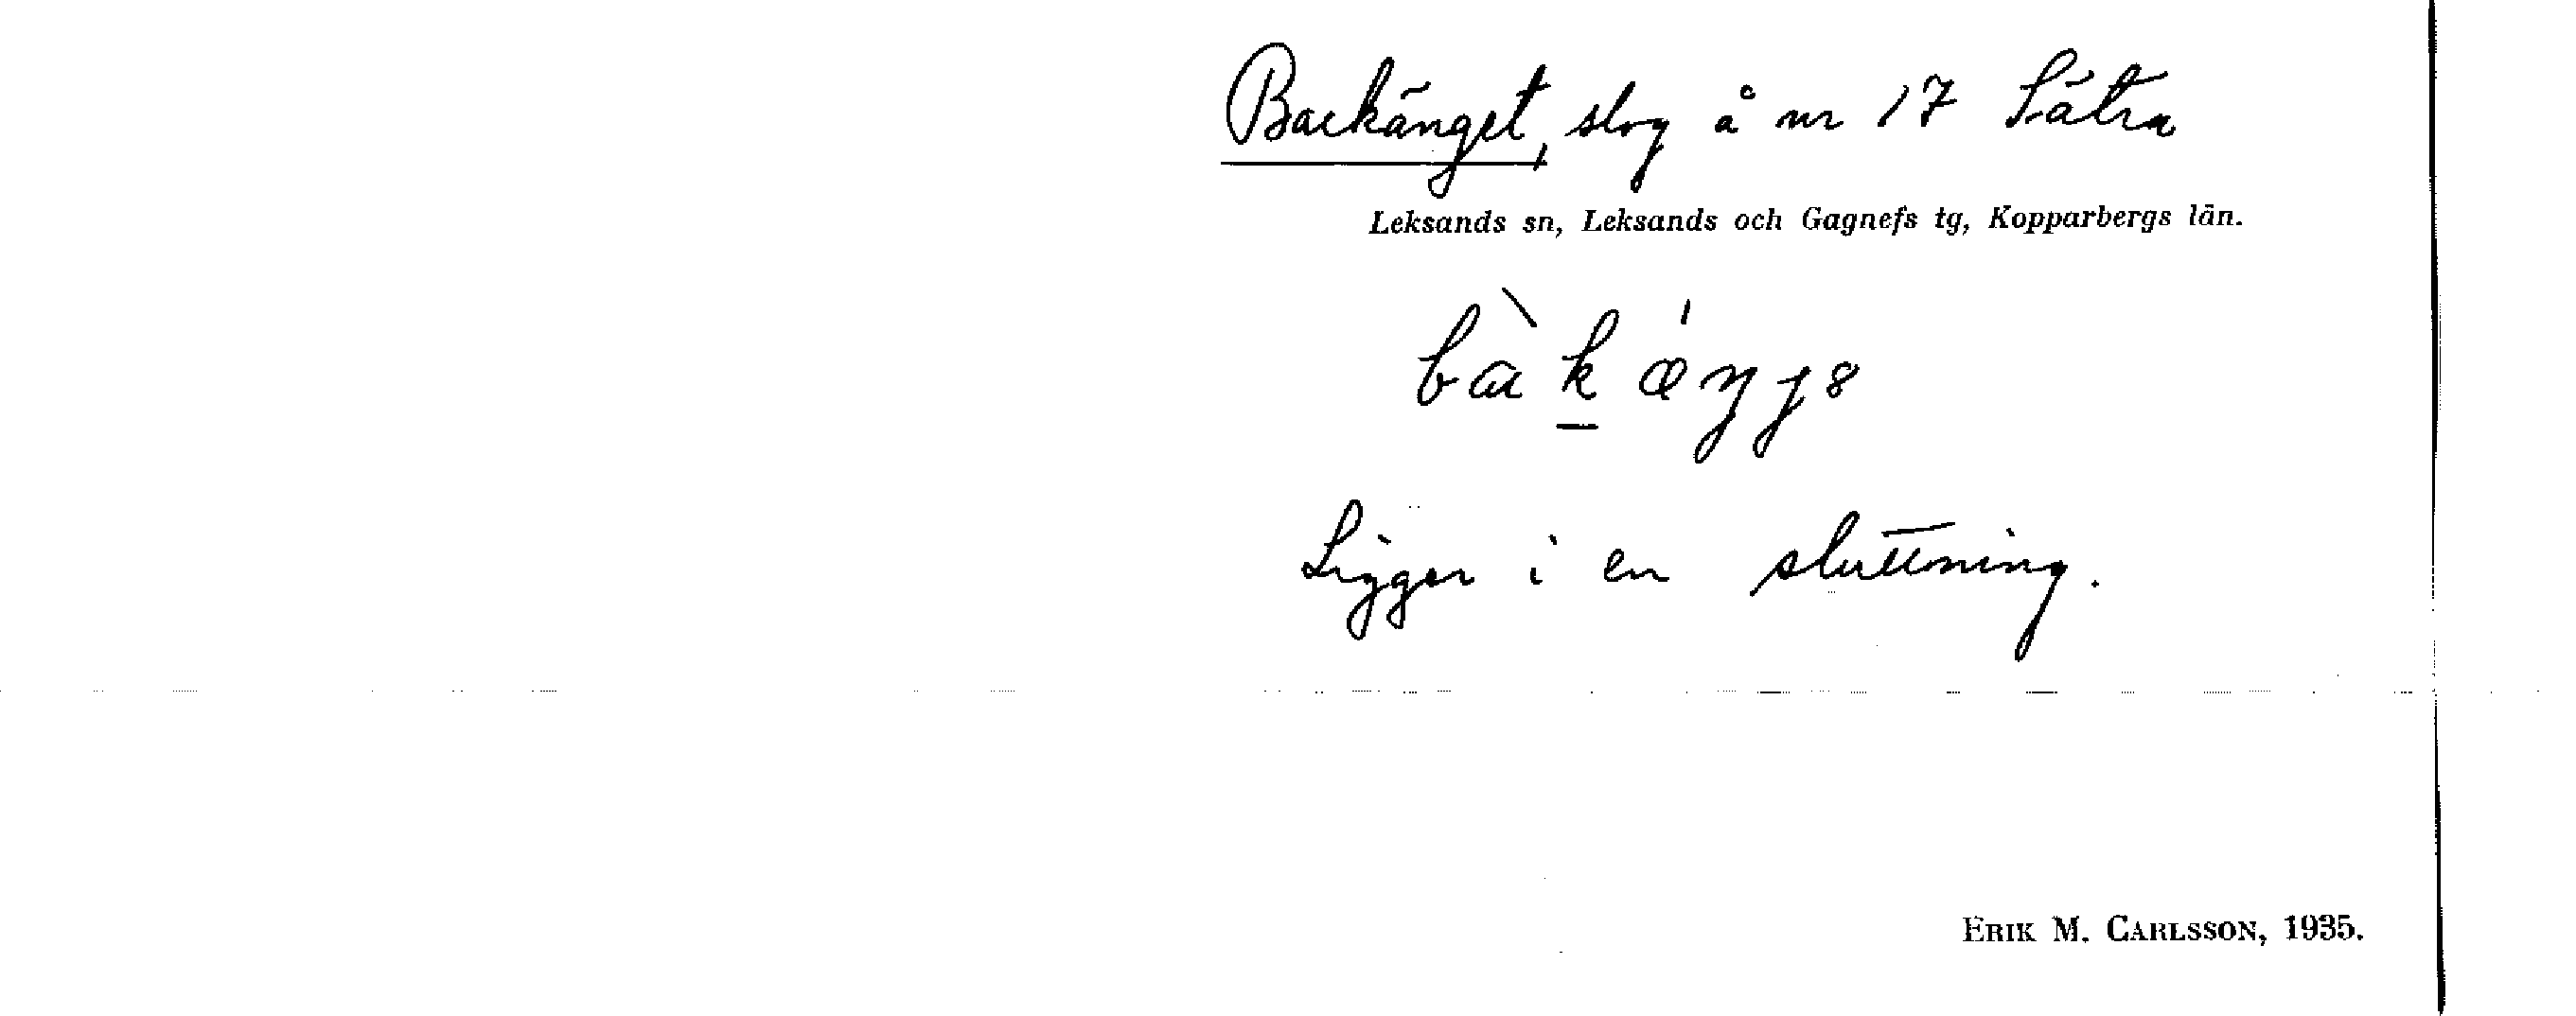 Backänget, slog å nr 17 Sätra
Leksands sn, Leksands och Gagnefs tg, Kopparbergs län.
Ligger i en sluttning.
ERIK M. CARLSSON, 1935.